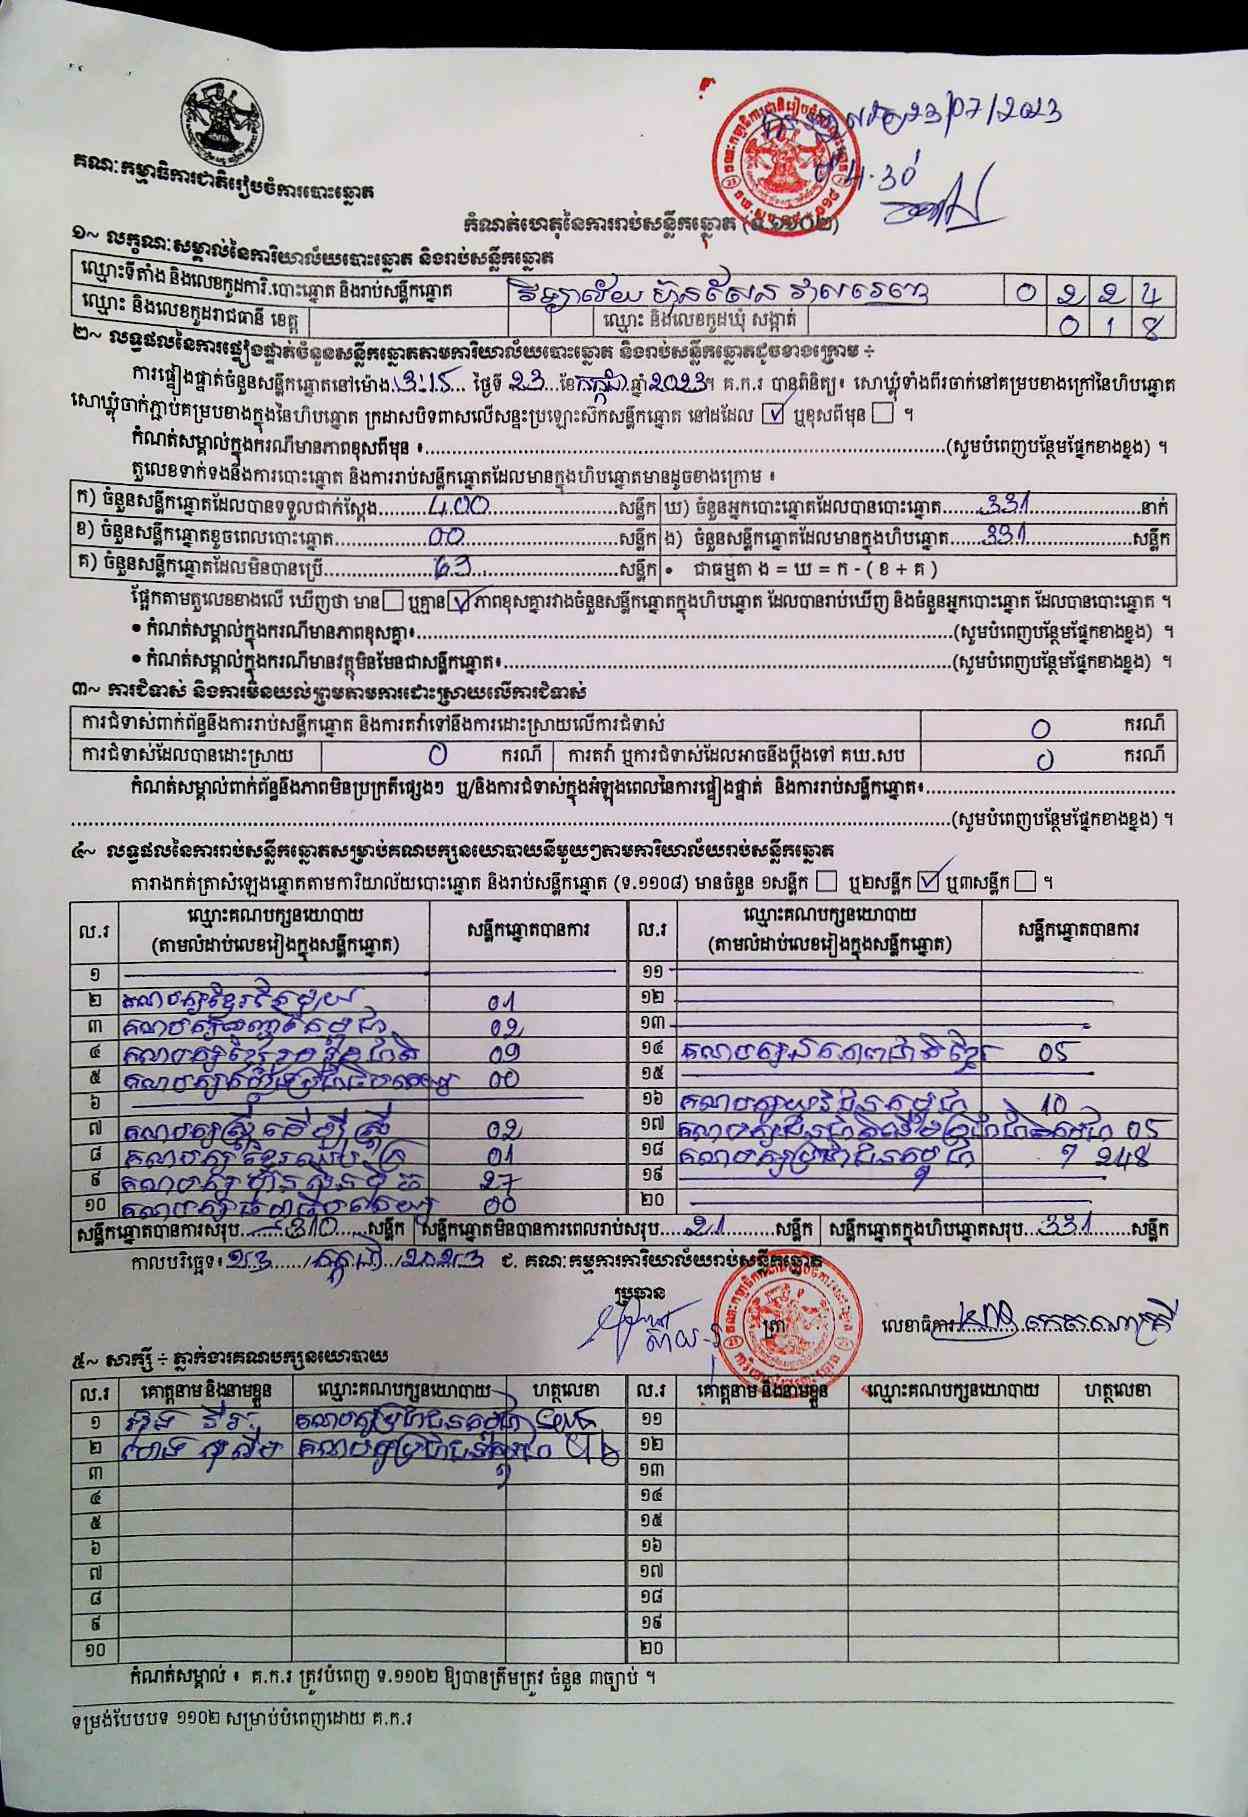 គណៈកម្មាធិការជាតិរៀបចំការបោះឆ្នោត
23/07/2023
4.30
កំណត់ហេតុនៃការរាប់សន្លឹកឆ្នោត (ទ.១១០២)
១~ លក្ខណៈសម្គាល់នៃការិយាល័យបោះឆ្នោត និងរាប់សន្លឹកឆ្នោត
ឈ្មោះទីតាំង និងលេខកូដការិ.បោះឆ្នោត និងរាប់សន្លឹកឆ្នោត វិទ្យាល័យ ហ៊ុនសែន វាលរេញ 0 2 2 4
ឈ្មោះ និងលេខកូដរាជធានី ខេត្ត ឈ្មោះ និងលេខកូដឃុំ សង្កាត់ 0 1 8
២~ លទ្ធផលនៃការផ្ទៀងផ្ទាត់ចំនួនសន្លឹកឆ្នោតតាមការិយាល័យបោះឆ្នោត និងរាប់សន្លឹកឆ្នោតដូចខាងក្រោម ÷
ការផ្ទៀងផ្ទាត់ចំនួនសន្លឹកឆ្នោតនៅម៉ោង 3:15 ថ្ងៃទី 23 ខែ កក្កដា ឆ្នាំ 2023។ គ.ក.រ បានពិនិត្យ៖ សោឃ្លុំទាំងពីរចាក់នៅគម្របខាងក្រៅនៃហិបឆ្នោត
សោឃ្លុំចាក់ភ្ជាប់គម្របខាងក្នុងនៃហិបឆ្នោត ក្រដាសបិទពាសលើសន្ទះប្រឡោះស៊កសន្លឹកឆ្នោត នៅដដែល ☑ ឬខុសពីមុន ☐ ។
កំណត់សម្គាល់ក្នុងករណីមានភាពខុសពីមុន ៖..........(សូមបំពេញបន្ថែមផ្នែកខាងខ្នង) ។
តួលេខទាក់ទងនឹងការបោះឆ្នោត និងការរាប់សន្លឹកឆ្នោតដែលមានក្នុងហិបឆ្នោតមានដូចខាងក្រោម ៖
ក) ចំនួនសន្លឹកឆ្នោតដែលបានទទួលជាក់ស្តែង.......400.......សន្លឹក ឃ) ចំនួនអ្នកបោះឆ្នោតដែលបានបោះឆ្នោត.......331.......នាក់
ខ) ចំនួនសន្លឹកឆ្នោតខូចពេលបោះឆ្នោត.......00.......សន្លឹក ង) ចំនួនសន្លឹកឆ្នោតដែលមានក្នុងហិបឆ្នោត.......331.......សន្លឹក
គ) ចំនួនសន្លឹកឆ្នោតដែលមិនបានប្រើ.......69.......សន្លឹក • ជាធម្មតា ង = ឃ = ក - ( ខ + គ )
ផ្អែកតាមតួលេខខាងលើ ឃើញថា មាន ☐ ឬគ្មាន ☑ ភាពខុសគ្នារវាងចំនួនសន្លឹកឆ្នោតក្នុងហិបឆ្នោត ដែលបានរាប់ឃើញ និងចំនួនអ្នកបោះឆ្នោត ដែលបានបោះឆ្នោត ។
• កំណត់សម្គាល់ក្នុងករណីមានភាពខុសគ្នា៖..........(សូមបំពេញបន្ថែមផ្នែកខាងខ្នង) ។
• កំណត់សម្គាល់ក្នុងករណីមានវត្ថុមិនមែនជាសន្លឹកឆ្នោត៖..........(សូមបំពេញបន្ថែមផ្នែកខាងខ្នង) ។
៣~ ការជំទាស់ និងការមិនយល់ព្រមតាមការដោះស្រាយលើការជំទាស់
ការជំទាស់ពាក់ព័ន្ធនឹងការរាប់សន្លឹកឆ្នោត និងការតវ៉ាទៅនឹងការដោះស្រាយលើការជំទាស់ 0 ករណី
ការជំទាស់ដែលបានដោះស្រាយ 0 ករណី ការតវ៉ា ឬការជំទាស់ដែលអាចនឹងប្តឹងទៅ គឃ.សប 0 ករណី
កំណត់សម្គាល់ពាក់ព័ន្ធនឹងភាពមិនប្រក្រតីផ្សេងៗ ឬ/និងការជំទាស់ក្នុងអំឡុងពេលនៃការផ្ទៀងផ្ទាត់ និងការរាប់សន្លឹកឆ្នោត៖..........
..........(សូមបំពេញបន្ថែមផ្នែកខាងខ្នង) ។
៤~ លទ្ធផលនៃការរាប់សន្លឹកឆ្នោតសម្រាប់គណបក្សនយោបាយនីមួយៗតាមការិយាល័យរាប់សន្លឹកឆ្នោត
តារាងកត់ត្រាសំឡេងឆ្នោតតាមការិយាល័យបោះឆ្នោត និងរាប់សន្លឹកឆ្នោត (ទ.១១០៨) មានចំនួន ១សន្លឹក ☐ ឬ២សន្លឹក ☑ ឬ៣សន្លឹក ☐ ។
ល.រ ឈ្មោះគណបក្សនយោបាយ (តាមលំដាប់លេខរៀងក្នុងសន្លឹកឆ្នោត) សន្លឹកឆ្នោតបានការ ល.រ ឈ្មោះគណបក្សនយោបាយ (តាមលំដាប់លេខរៀងក្នុងសន្លឹកឆ្នោត) សន្លឹកឆ្នោតបានការ
១ ១១
២ 01 ១២
៣ គណបក្ស កម្ពុជា 02 ១៣
៤ គណបក្សខ្មែររួបរួមជាតិ 09 ១៤ គណបក្ស 05
៥ គណបក្ស 00 ១៥
៦ ១៦ គណបក្សយុវជនកម្ពុជា 10
៧ គណបក្សស្ត្រីដើម្បីស្ត្រី 02 ១៧ គណបក្ស 05
៨ គណបក្ស 01 ១៨ គណបក្សប្រជាជនកម្ពុជា 248
៩ គណបក្សហ្វ៊ុនស៊ិនប៉ិច 27 ១៩
១០ គណបក្ស 00 ២០
សន្លឹកឆ្នោតបានការសរុប.....310.....សន្លឹក សន្លឹកឆ្នោតមិនបានការពេលរាប់សរុប.....21.....សន្លឹក សន្លឹកឆ្នោតក្នុងហិបឆ្នោតសរុប.....331.....សន្លឹក
កាលបរិច្ឆេទ៖ 23 / កក្កដា / 2023 ជ. គណៈកម្មការការិយាល័យរាប់សន្លឹកឆ្នោត
ប្រធាន
ត្រា លេខាធិការ
៥~ សាក្សី ÷ ភ្នាក់ងារគណបក្សនយោបាយ
ល.រ គោត្តនាម និងនាមខ្លួន ឈ្មោះគណបក្សនយោបាយ ហត្ថលេខា ល.រ គោត្តនាម និងនាមខ្លួន ឈ្មោះគណបក្សនយោបាយ ហត្ថលេខា
១ គណបក្សប្រជាជនកម្ពុជា ១១
២ គណបក្សប្រជាជនកម្ពុជា ១២
៣ ១៣
៤ ១៤
៥ ១៥
៦ ១៦
៧ ១៧
៨ ១៨
៩ ១៩
១០ ២០
កំណត់សម្គាល់ ៖ គ.ក.រ ត្រូវបំពេញ ទ.១១០២ ឱ្យបានត្រឹមត្រូវ ចំនួន ៣ច្បាប់ ។
ទម្រង់បែបបទ ១១០២ សម្រាប់បំពេញដោយ គ.ក.រ